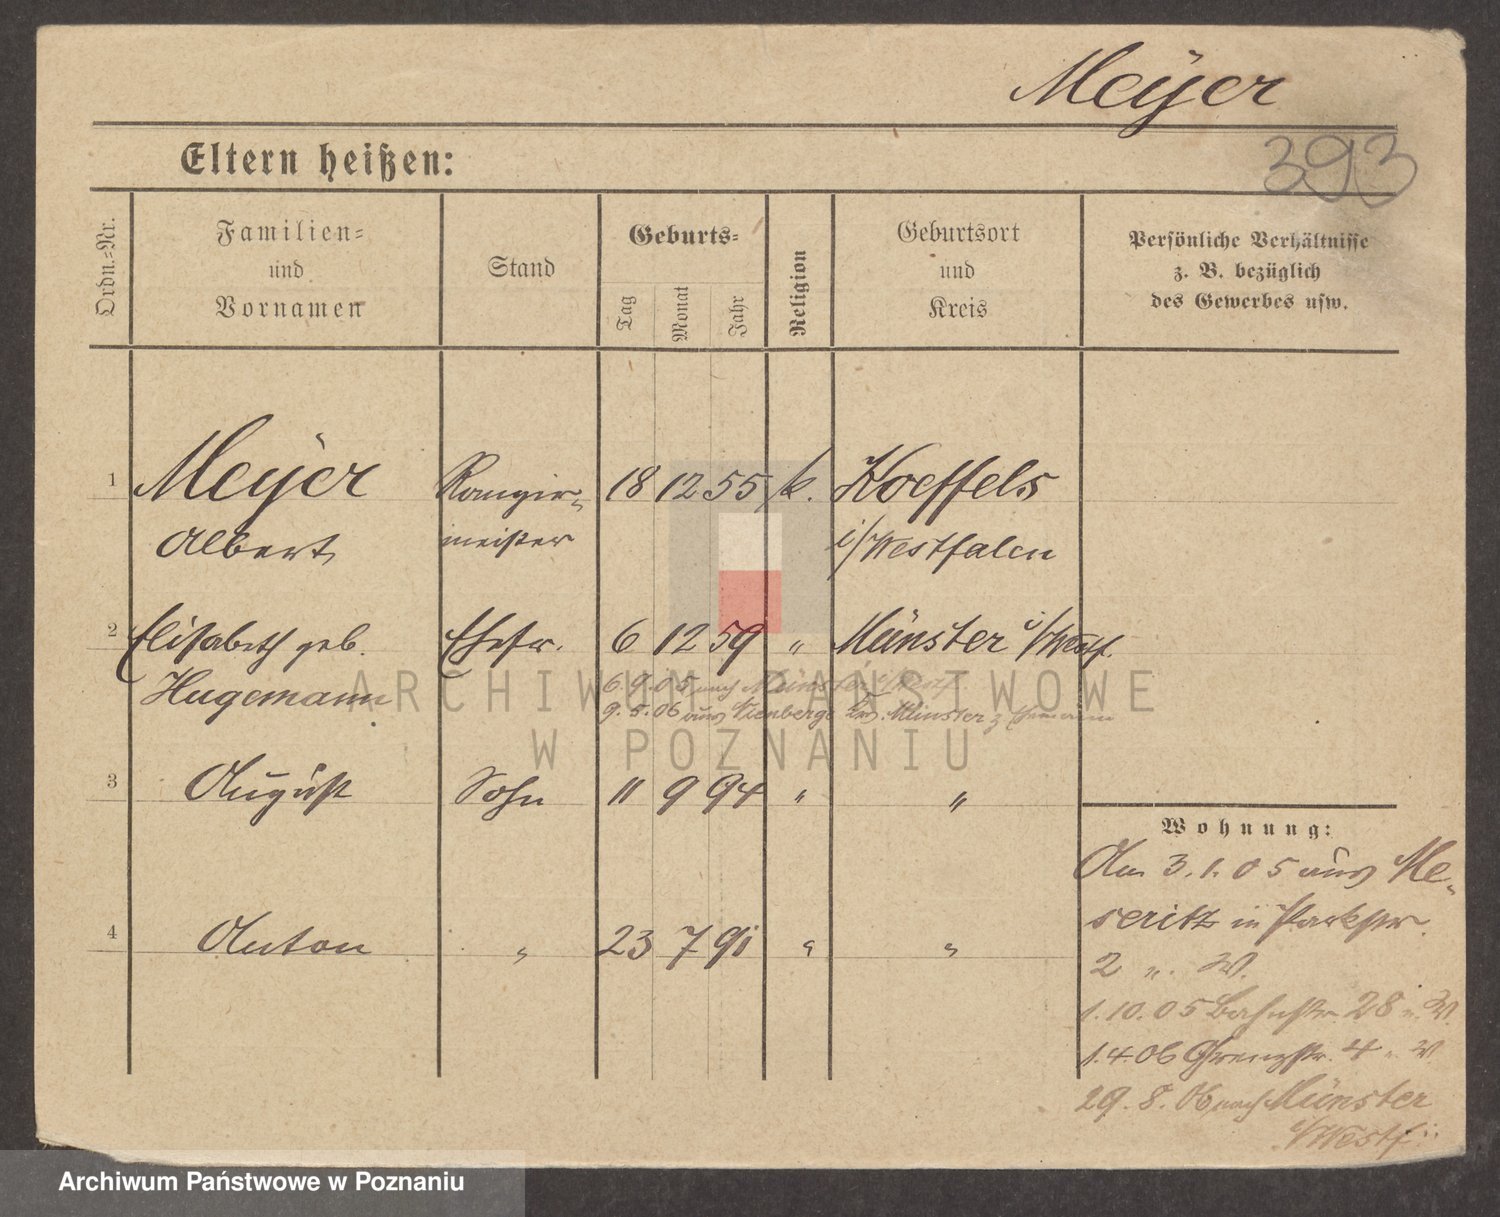 Meÿer
393
Eltern heißen:
Ordn.-Nr.
Familien-
und
Vornamen
Stand
Geburts-
Tag
Monat
Jahr
Religion
Geburtsort
und
Kreis
Persönliche Verhältnisse
z. B. bezüglich
des Gewerbes usw.
1 Meÿer Rangir- 18 12 55 k. Hoeffels
Albert meister i/Westfalen
2 Elisabeth geb. Ehefr. 6 12 59 " Münster i/Westf.
Hugemann
6.9.05 nach Münster i/Westf
9.5.06 aus Nienberge Krs. Münster z Ehemann
3 August Sohn 11 9 94 " "
4 Anton " 23 7 91 " "
Wohnung:
Am 3.1.05 aus Me-
seritz in Parkstr.
2 "
1.10.05 Bahnstr. 28
1.4.06 Grenzstr. 4
29.8.06 nach Münster
i/Westf.
ARCHIWUM PAŃSTWOWE
W POZNANIU
Archiwum Państwowe w Poznaniu